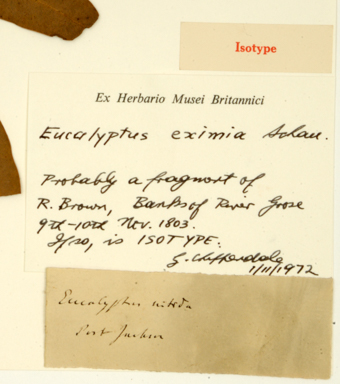 Isotype
Ex Herbario Musei Britannici
Eucalyptus eximia Schau.
Probably a fragment of
R. Brown, Banks of River Grose
9th-10th Nov. 1803.
If so, is ISOTYPE.
G. Chippendale
1/11/1972
Eucalyptus nitida
Port Jackson